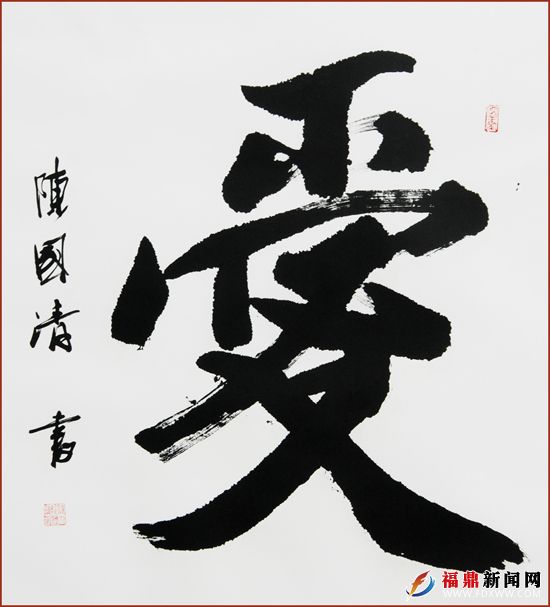 愛
陳國清
書
福鼎新闻网
WWW.FDXWW.COM